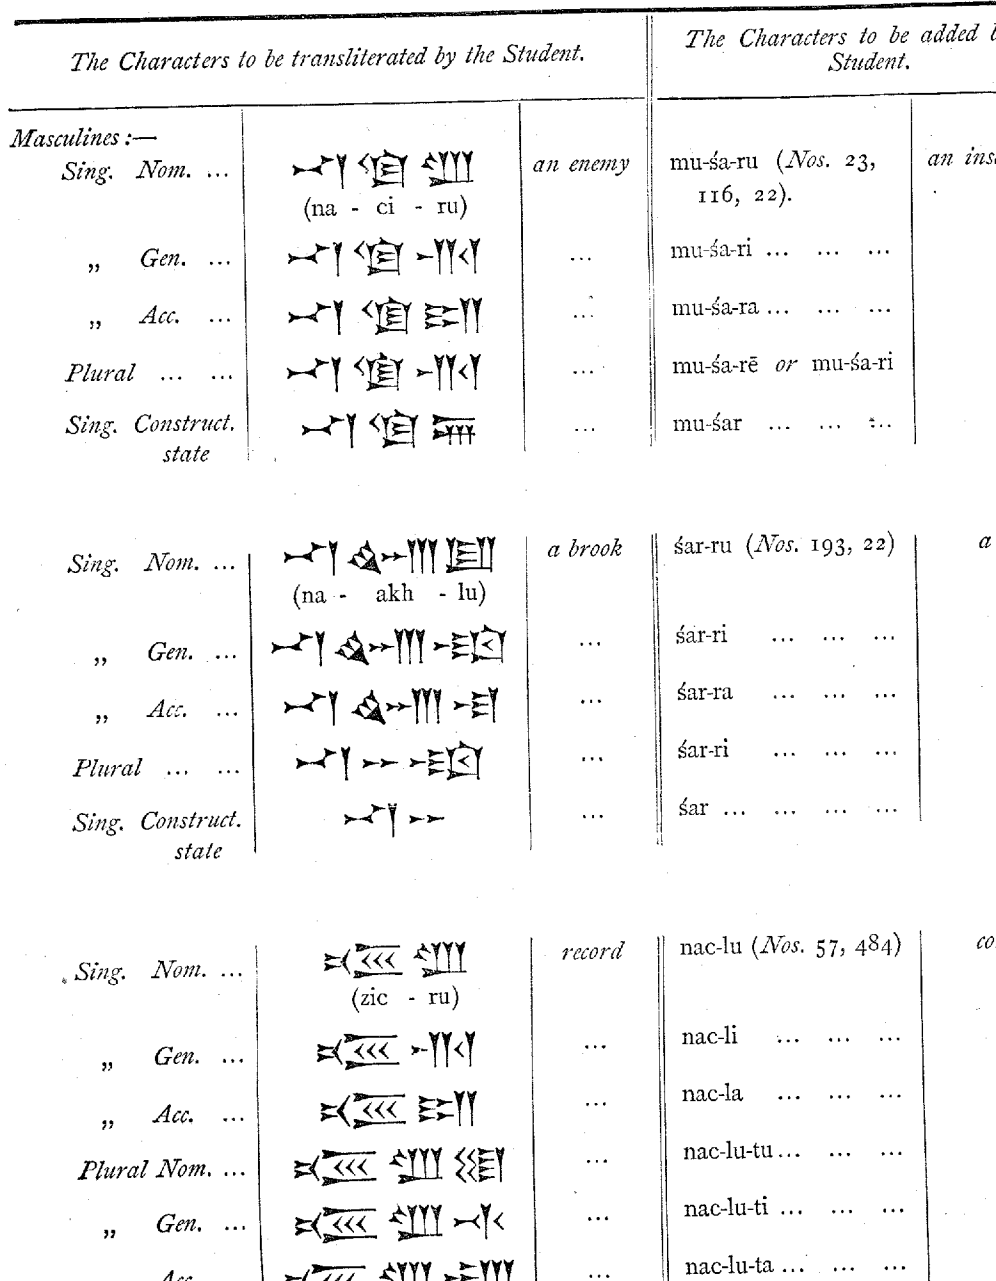 The Characters to be transliterated by the Student. The Characters to be added
Student.
Masculines :—
Sing. Nom. ... 𒈾 𒆠 𒊒 an enemy mu-śa-ru (Nos. 23, an
(na - ci - ru) 116, 22).
„ Gen. ... 𒈾 𒆠 𒊑 ... mu-śa-ri ... ... ...
„ Acc. ... 𒈾 𒆠 𒊏 ... mu-śa-ra ... ... ...
Plural ... ... 𒈾 𒆠 𒊑 ... mu-śa-rē or mu-śa-ri
Sing. Construct. ... mu-śar ... ... ...
state
Sing. Nom. ... 𒈾 𒄴 𒇻 a brook śar-ru (Nos. 193, 22) a
(na - akh - lu)
„ Gen. ... 𒈾 𒄴 𒇷 ... śar-ri ... ... ...
„ Acc. ... 𒈾 𒄴 𒆷 ... śar-ra ... ... ...
Plural ... ... 𒈾 𒇷 ... śar-ri ... ... ...
Sing. Construct. 𒈾 ... śar ... ... ... ...
state
Sing. Nom. ... 𒊒 record nac-lu (Nos. 57, 484)
(zic - ru)
„ Gen. ... 𒊑 ... nac-li ... ... ...
„ Acc. ... 𒊏 ... nac-la ... ... ...
Plural Nom. ... 𒊒 𒌅 ... nac-lu-tu ... ... ...
„ Gen. ... 𒊒 𒋾 ... nac-lu-ti ... ... ...
Acc. 𒊒 𒋫 ... nac-lu-ta ... ... ...